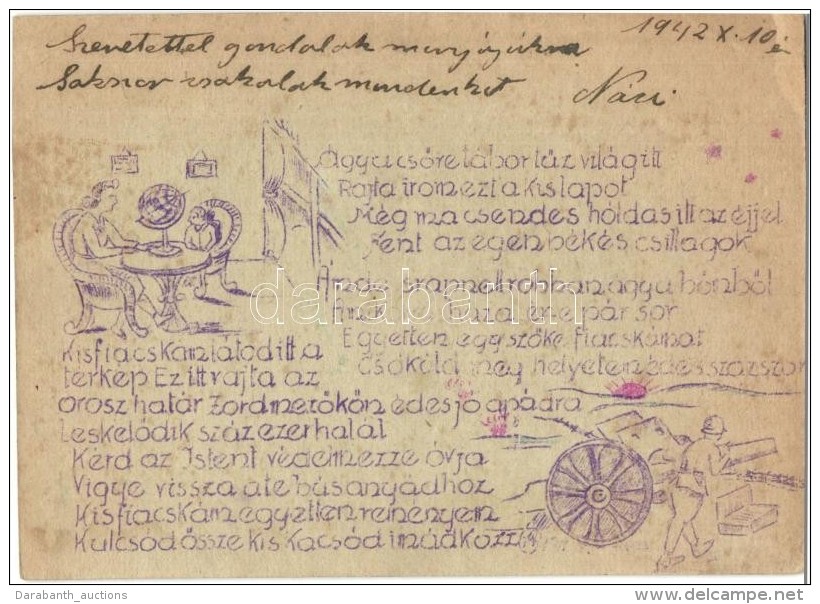 Szeretettel gondolok
1942 X. 10 én
Sokszor csokolok mindenkit Náci
Ágyucső re tábortűz világitt
Rajta irom ezt a kis lapot
Még ma csendes holdas itt az éjjel
Fent az egen békés csillagok
srapnel robban ágyu
haza én e pár sor
Egyetlen egy szőke fiacskámat
Csókold meg helyetem édes százszor
Kisfiacskám látod itt a
térkép Ez itt rajta az
orosz határ Zord mezőkön édes jó apádra
Leskelődik száz ezer halál
Kérd az Istent védelmezze óvja
Vigye vissza a te bús anyádhoz
Kisfiacskám egyetlen reményem
Kulcsód össze kis kacsód imádkozz
darabanth
Darabanth_auctions
www.delcampe.net